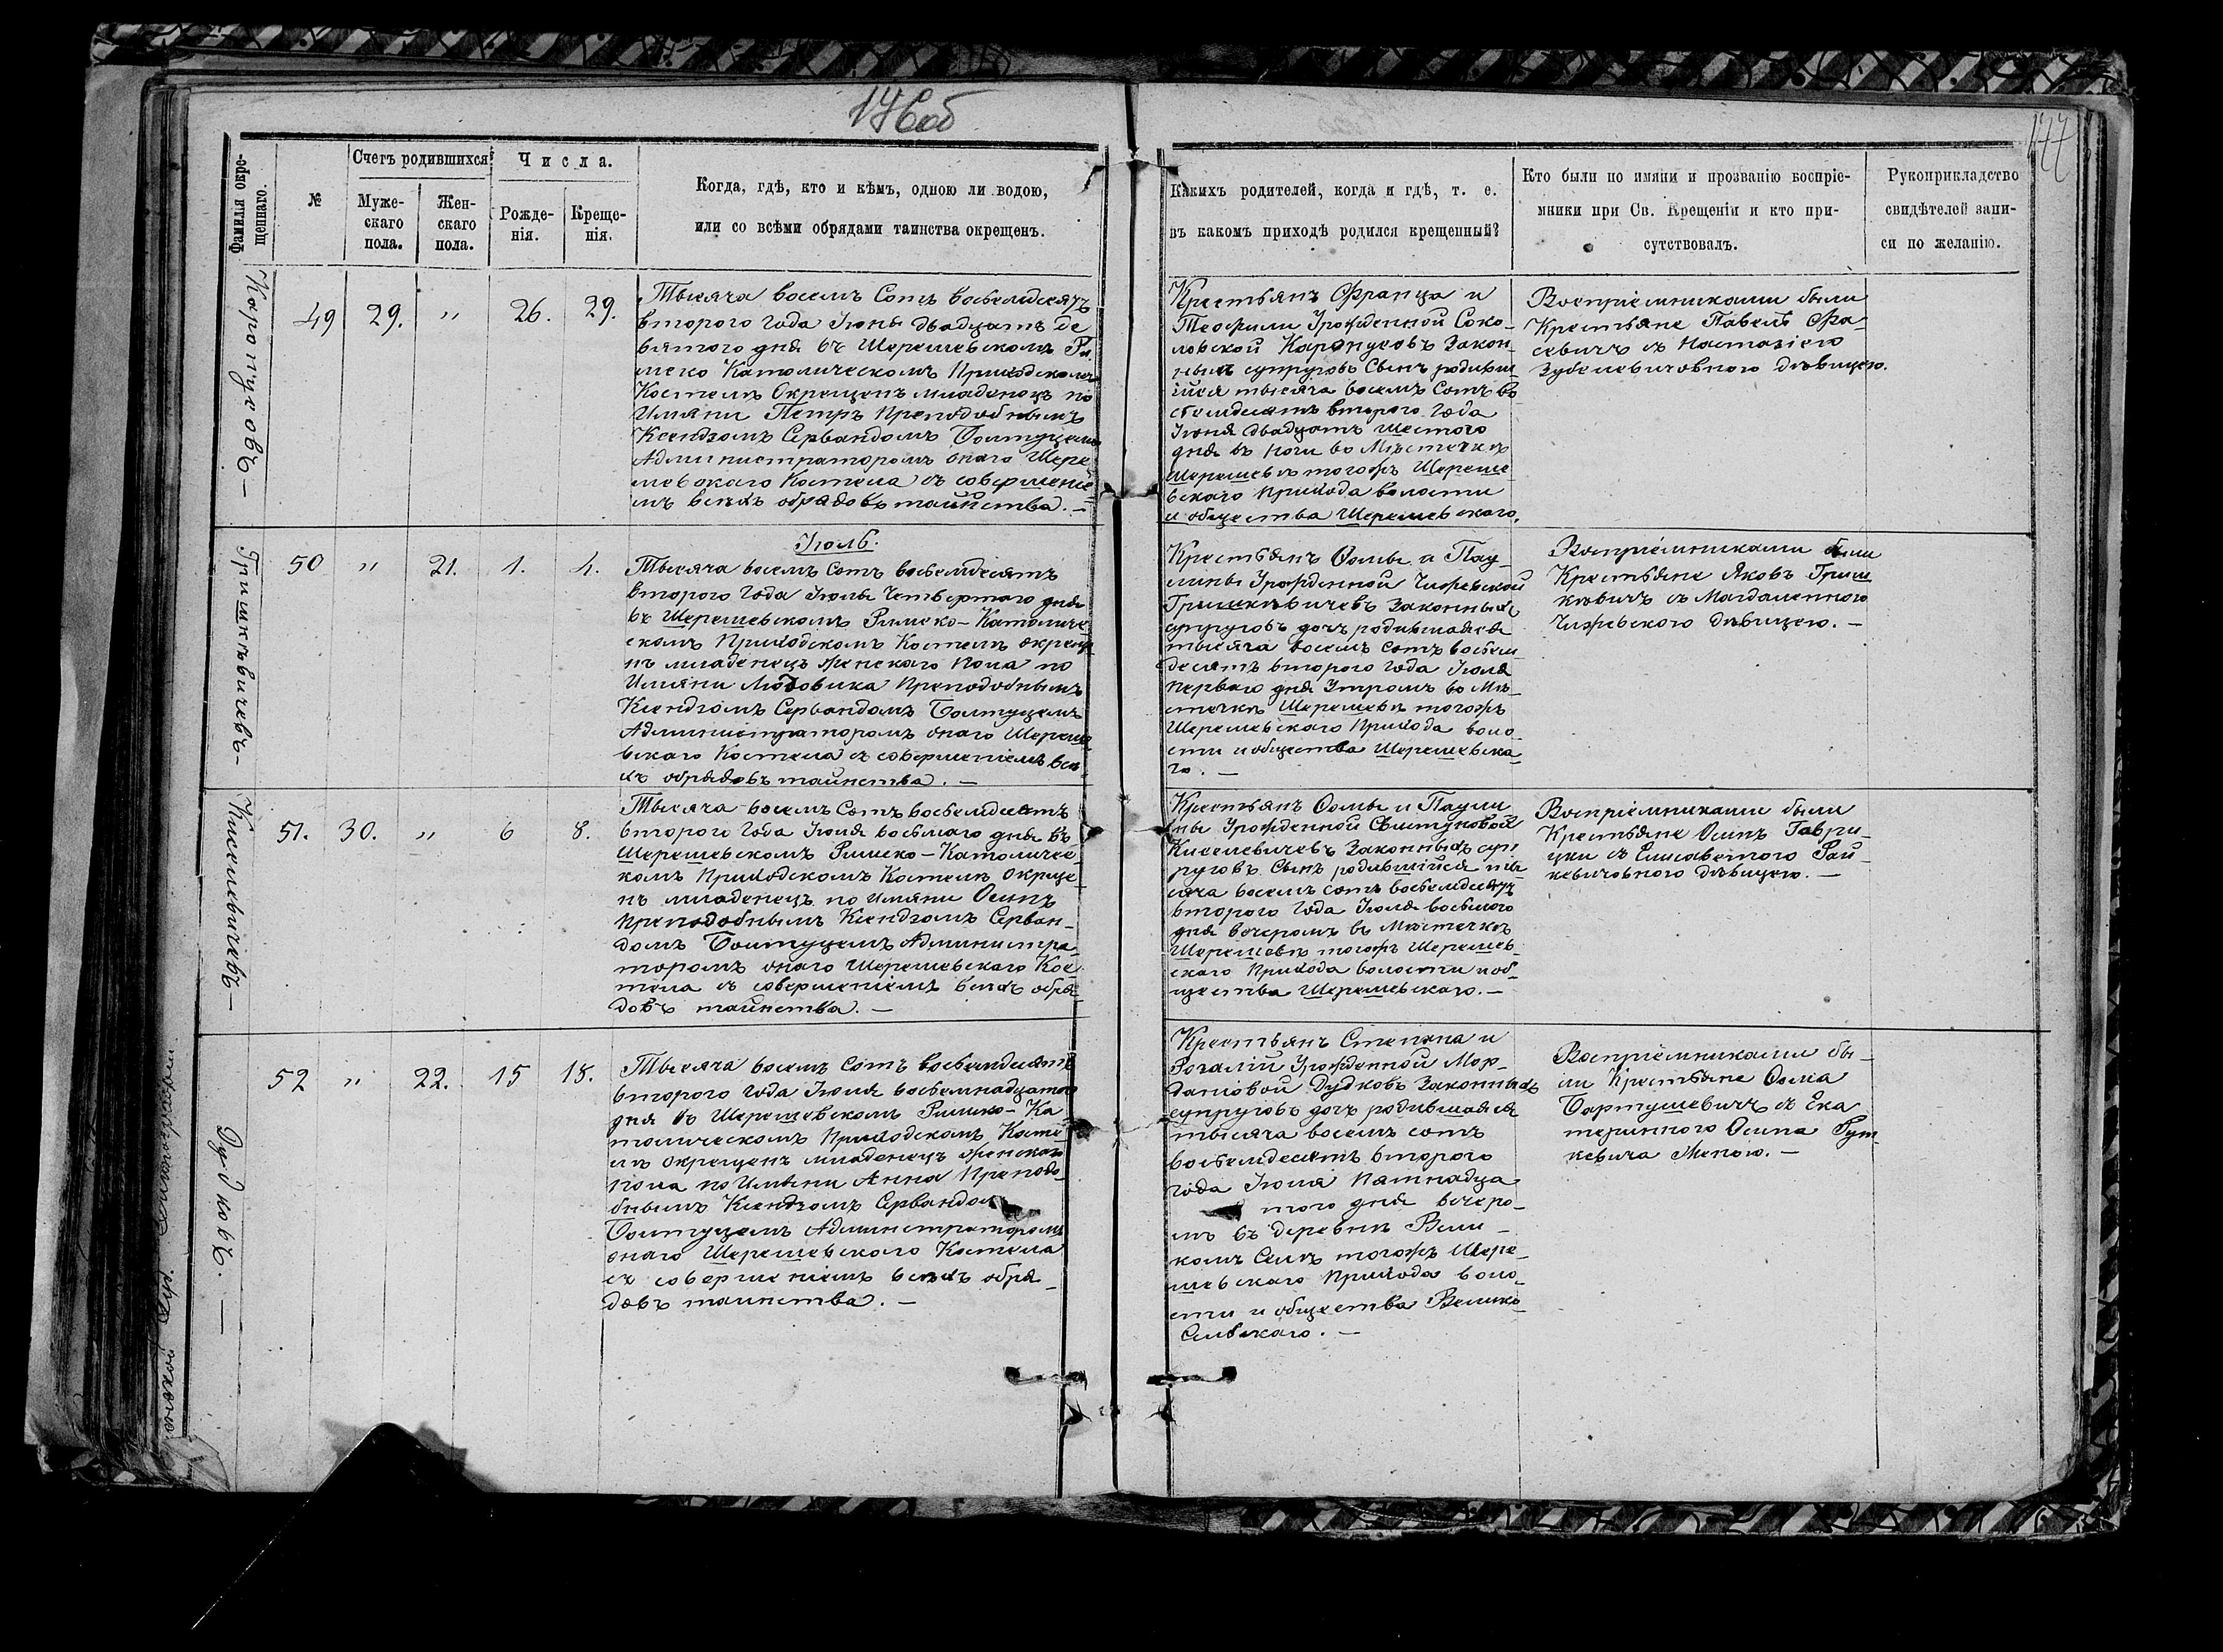 176об
177
Фамилія окре-
щеннаго.
№
Счетъ родившихся
Муже-
скаго
пола.
Жен-
скаго
пола.
Числа.
Рожде-
нія.
Креще-
нія.
Когда, гдѣ, кто и кѣмъ, одною ли водою,
или со всѣми обрядами таинства окрещенъ.
Какихъ родителей, когда и гдѣ, т. е.
въ какомъ приходѣ родился крещенный?
Кто были по имяни и прозванію воспріе-
мники при Св. Крещеніи и кто при-
сутствовалъ.
Рукоприкладство
свидѣтелей запи-
си по желанію.
49 29. " 26. 29.
Тысяча восемъ Сотъ восьмдесятъ
второго года Іюня двадцать де
вятого дня въ Шерешевскомъ Ри.
мско Католическомъ Приходскомъ
Костелѣ Окрещенъ младенецъ по
Имяни Петръ Преподобнымъ
Ксендзомъ Сервандомъ Болтуцемъ
Администраторомъ онаго Шере
шевскаго Костела съ совершеніе
мъ всѣхъ обрядовъ таинства. —
Крестьянъ Франца и
Теофили Урожденной Соко-
ловской Закон-
ныхъ супруговъ Сынъ родивш
ійся тысяча восемъ Сотъ во
сьмдесятъ второго года
Іюня двадцать шестого
дня въ ночи во Мѣстечкѣ
Шерешевѣ тогожъ Шереше
вскаго Прихода волости
и общества Шерешевскаго.
Воспріемниками были
Крестьяне Павелъ Фа-
севичъ съ Настазіею
девицею.
Гришкѣвичевъ —
50 " 21. 1. 4.
Іюль.
Тысяча восемъ сотъ восьмдесятъ
второго года Іюля Четвертого дня
въ Шерешевскомъ Римско-Католиче
скомъ Приходскомъ Костелѣ окреще
нъ младенецъ женскаго пола по
Имяни Людовика Преподобнымъ
Ксендзомъ Сервандомъ Болтуцемъ
Администраторомъ онаго Шереше
вскаго Костела съ совершеніемъ всѣ
хъ обрядовъ таинства. —
Крестьянъ Фомы и Пау-
лины Урожденной Чижевской
Гришкѣвичевъ Законныхъ
супруговъ дочъ родившаяся
тысяча восемъ сотъ восьм
десятъ второго года Іюля
перваго дня Утромъ во Мѣ-
стечкѣ Шерешевѣ тогожъ
Шерешевскаго Прихода воло
сти и общества Шерешевска-
го. —
Воспріемниками были
Крестьяне Яковъ Гриш
кѣвичъ съ Магдаленною
Чижевского дѣвицею. —
Киселевичевъ —
51. 30. " 6 8.
Тысяча восемъ Сотъ восьмдесятъ
второго года Іюля восьмаго дня въ
Шерешевскомъ Римско-Католичес
комъ Приходскомъ Костелѣ Окреще-
нъ младенецъ по имяни Осипъ
Преподобнымъ Ксендзомъ Серван-
домъ Болтуцемъ Администра-
торомъ онаго Шерешевскаго Кос
тела съ совершеніемъ всѣхъ обря
довъ таинства. —
Крестьянъ Фомы и Паули
ны Урожденной
Киселевичевъ Законныхъ суп
руговъ Сынъ родившійся ты
сяча восемъ сотъ восьмдесятъ
второго года Іюля восьмого
дня вечеромъ въ Мѣстечкѣ
Шерешевѣ тогожъ Шерешев
скаго Прихода волости и об-
щества Шерешевскаго. —
Воспріемниками были
Крестьяне Осипъ Гаври-
цки съ Елисаветою Рай-
кевичовною дѣвицею. —
Дудковъ. —
52 " 22. 15 18.
Тысяча восемъ Сотъ восьмдесятъ
второго года Іюля восьмнадцатого
дня въ Шерешевскомъ Римско-Ка
толическомъ Приходскомъ Косте
лѣ Окрещенъ младенецъ женскаго
пола по Имяни Анна Преподо-
бнымъ Ксендзомъ Сервандом
Болтуцемъ Администраторомъ
онаго Шерешевскаго Костела
съ совершеніемъ всѣхъ обря-
довъ таинства. —
Крестьянъ Степана и
Розаліи Урожденной Мор-
Дудковъ Законныхъ
супруговъ дочъ родившаяся
тысяча восемъ сотъ
восьмдесятъ второго
года Іюля Пятнадца
того дня вечеро-
мъ въ деревнѣ Вели-
комъ Селѣ тогожъ Шере-
шевскаго Прихода воло-
сти и общества Велико
Сельскаго. —
Воспріемниками бы-
ли Крестьяне Фома
Бартушевичъ съ Ека
териною Осипа Рут
кевича Женою. —